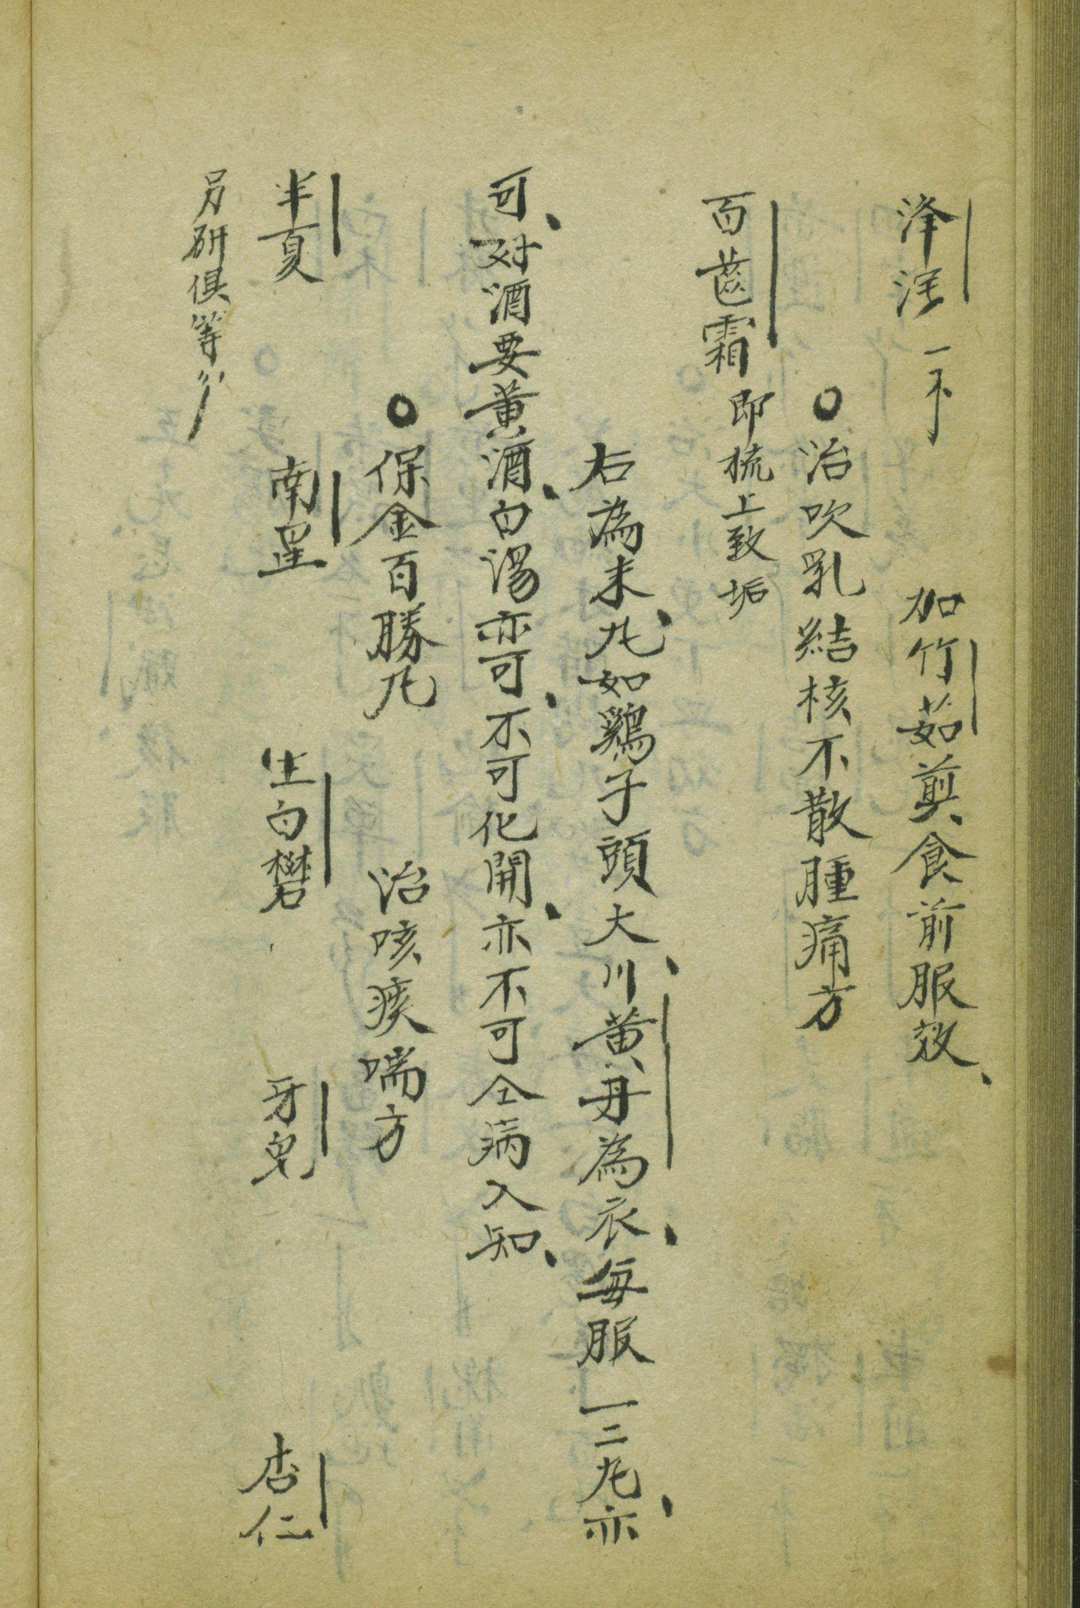 泽泻一不 加竹茹煎食前服效、
○治吹乳結核不散腫痛方
百齒霜 即梳上致垢
右為末、丸如鷄子頭大、川黄丹為衣、每服一二丸、亦
可、对酒要黄酒、白湯亦可、不可化開、亦不可仝病人知、
○保金百勝丸 治咳痰喘方
半夏 南星 生白礬 牙皂 杏仁
另研俱等分